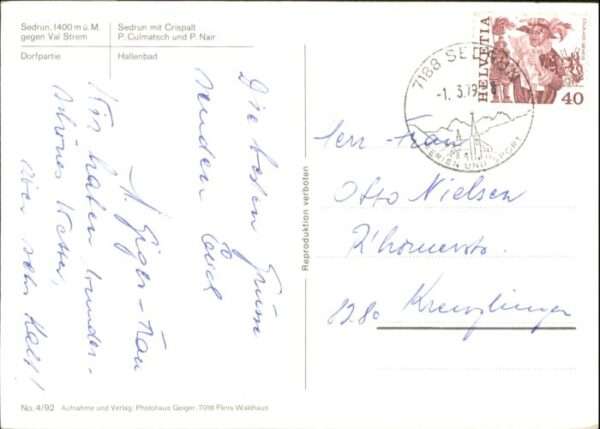 Sedrun, 1400 m ü. M.
gegen Val Strem
Dorfpartie
Sedrun mit Crispalt
P. Culmatsch und P. Nair
Hallenbad
Die besten Grüsse
senden Euch
A. Geiger-Frau
Wir haben wunder-
schönes Wetter,
aber sehr kalt!
No. 4/92 Aufnahme und Verlag: Photohaus Geiger, 7018 Flims Waldhaus
Reproduktion verboten
7188 SEDRUN
-1. 3.79
FERIEN UND SPORT
HELVETIA
40
Herr - Frau
Otto Nielsen
8280 Kreuzlingen